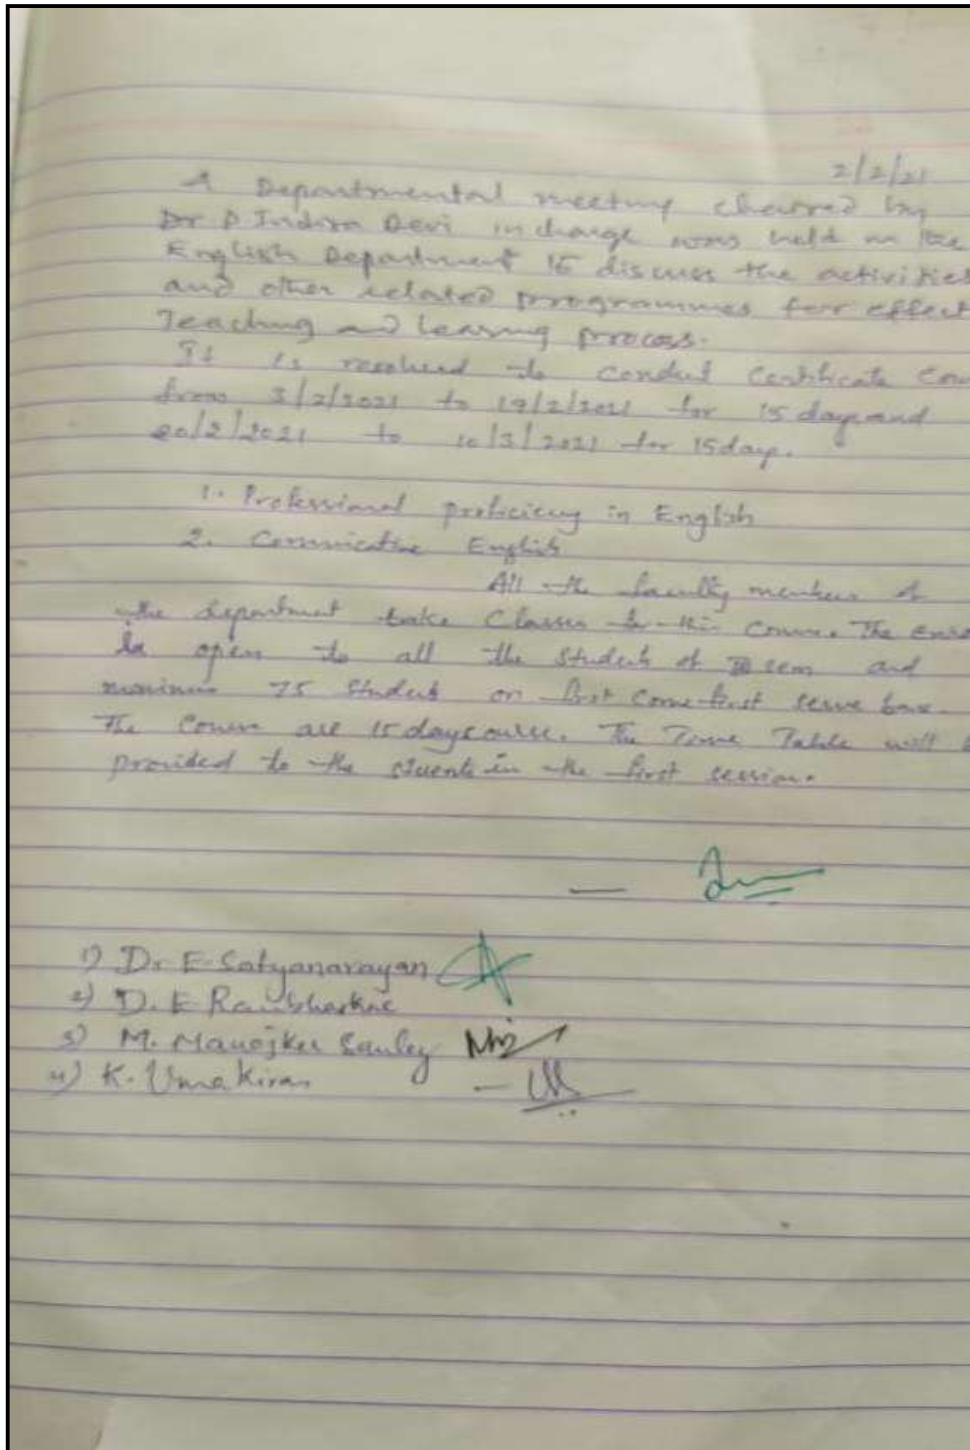 2/2/21
A Departmental meeting chaired by
Dr P Indira Devi incharge was held in the
English Department to discuss the activities
and other related programmes for effect
Teaching and learning process.
It is resolved to conduct Certificate Cou
from 3/2/2021 to 19/2/2021 for 15 days and
20/2/2021 to 10/3/2021 for 15 day.
1. Professional proficiency in English
2. Communicative English
All the faculty members of
the department take Classes for this course. The enro
is open to all the students of sem and
75 students on first come first serve base.
The Course are 15 days course. The Time Table will b
provided to the stuents in the first session.
1) Dr E. Satyanarayan
2) D. E
3) M.
4) K. Uma Kiran